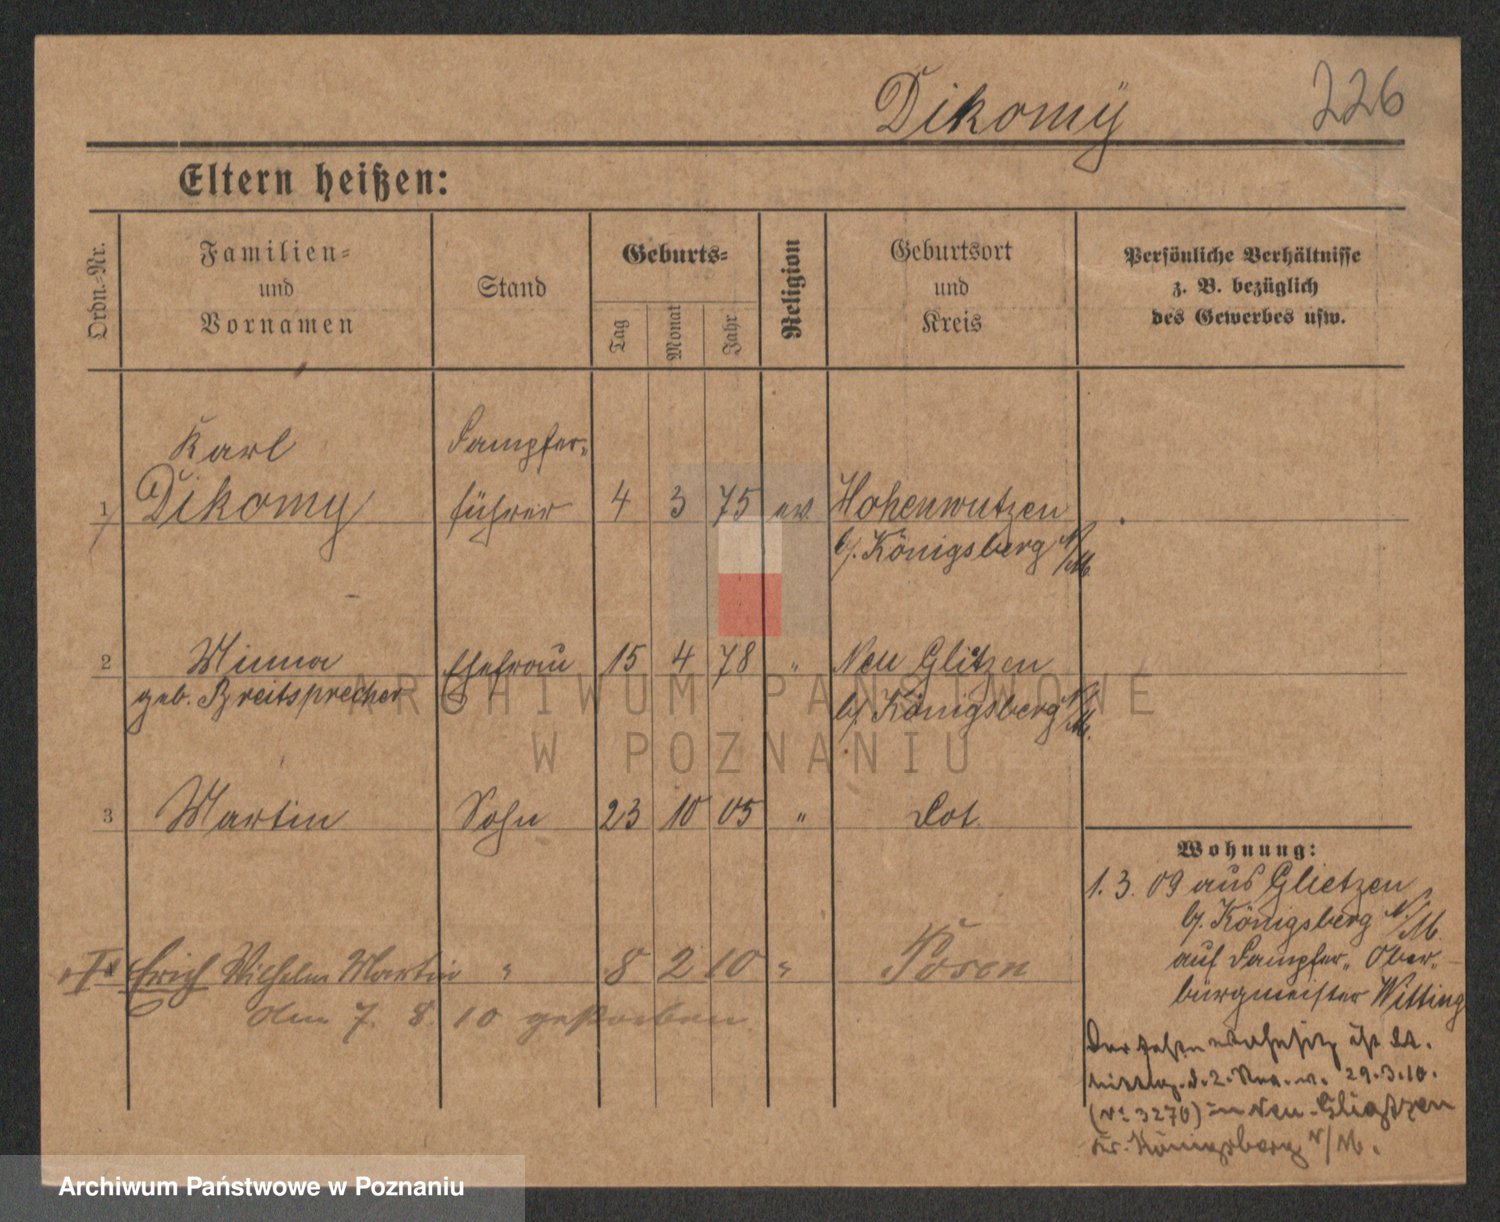 Dikomÿ 226
Eltern heißen:
Ordn.-Nr.
Familien=
und
Vornamen
Stand
Geburts=
Tag
Monat
Jahr
Religion
Geburtsort
und
Kreis
Persönliche Verhältnisse
z. B. bezüglich
des Gewerbes usw.
Karl Dampfer-
1 Dikomy führer 4 3 75 ev. Hohenwutzen
b/. Königsberg N/M.
2 Minna Ehefrau 15 4 78 " Neu Glitzen
geb. Breitsprecher b/ Königsberg N/M.
3 Martin Sohn 23 10 05 " Dot.
Wohnung:
1.3.09 aus Glietzen
b/. Königsberg N/M.
auf Dampfer „Ober-
bürgmeister Witting
Erich Wilhelm Martin " 8 2 10 " Posen
Am 7. 8. 10 gestorben
Der Wohnsitz ist lt.
29.3.10.
(No 3270) in Neu-Glietzen
Kr. Königsberg N/M.
ARCHIWUM PAŃSTWOWE
W POZNANIU
Archiwum Państwowe w Poznaniu